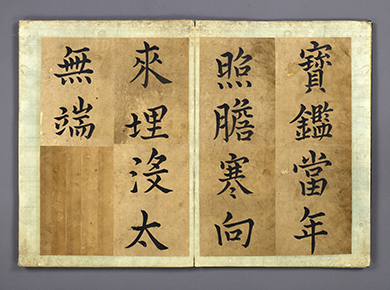 寶鑑當年
照膽寒向
來埋没太
無端